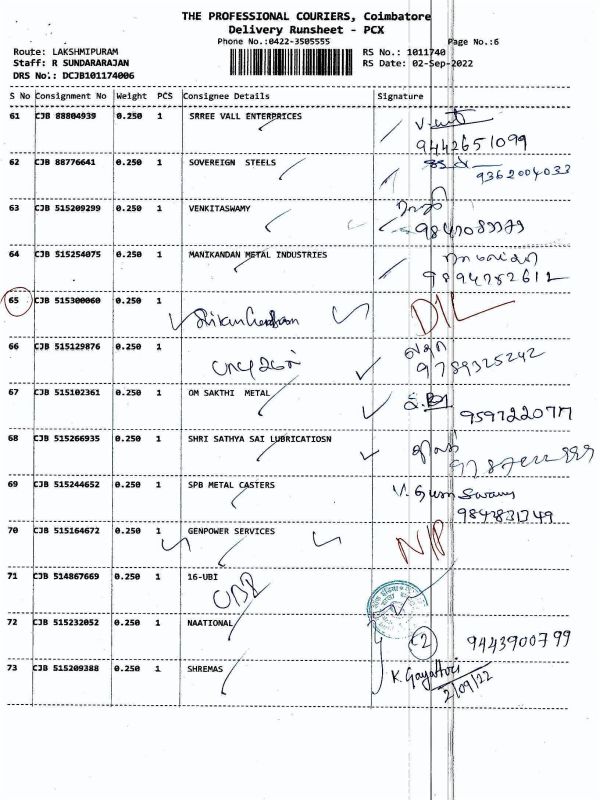 THE PROFESSIONAL COURIERS, Coimbatore
Delivery Runsheet - PCX
Phone No.:0422-3505555 Page No.:6
Route: LAKSHMIPURAM RS No.: 1011740
Staff: R SUNDARARAJAN RS Date: 02-Sep-2022
DRS No.: DCJB101174006
S No Consignment No Weight PCS Consignee Details Signature
61 CJB 88804939 0.250 1 SRREE VALL ENTERPRICES
9442651099
62 CJB 88776641 0.250 1 SOVEREIGN STEELS
9362004033
63 CJB 515209299 0.250 1 VENKITASWAMY
64 CJB 515254075 0.250 1 MANIKANDAN METAL INDUSTRIES
9894782612
65 CJB 515300060 0.250 1 D/L
66 CJB 515129876 0.250 1
9789325242
67 CJB 515102361 0.250 1 OM SAKTHI METAL
68 CJB 515266935 0.250 1 SHRI SATHYA SAI LUBRICATIOSN
69 CJB 515244652 0.250 1 SPB METAL CASTERS
70 CJB 515164672 0.250 1 GENPOWER SERVICES N/P
71 CJB 514867669 0.250 1 16-UBI
72 CJB 515232052 0.250 1 NAATIONAL 2 9443900799
73 CJB 515209388 0.250 1 SHREMAS K. Gayathri
2/09/22